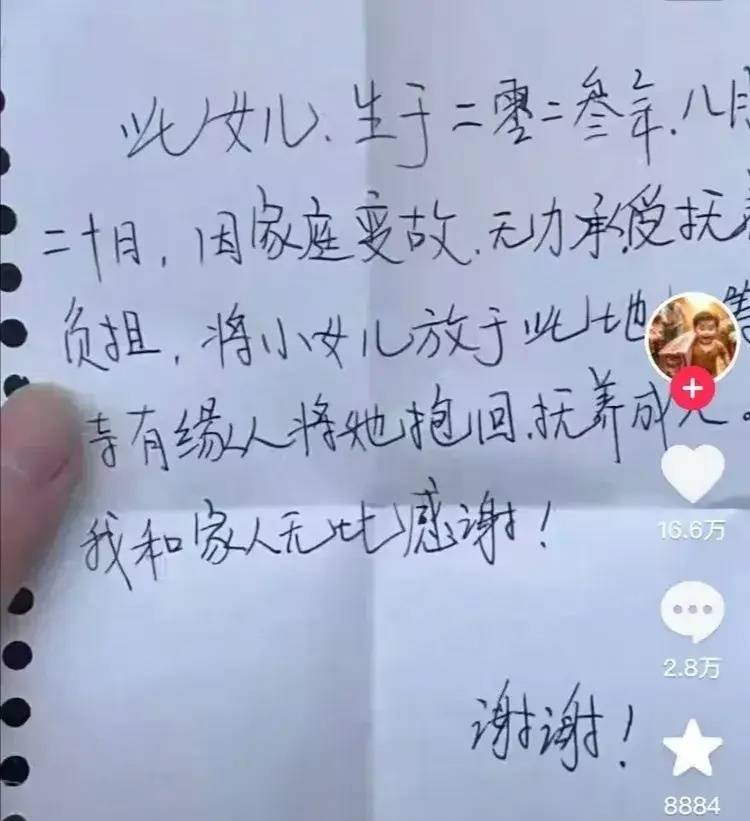 此女儿、生于二零二叁年.八月
二十日，因家庭变故.无力承受抚养
负担，将小女儿放于此地
有缘人将她抱回.抚养成人。
我和家人无比感谢！
谢谢！
16.6万
2.8万
8884